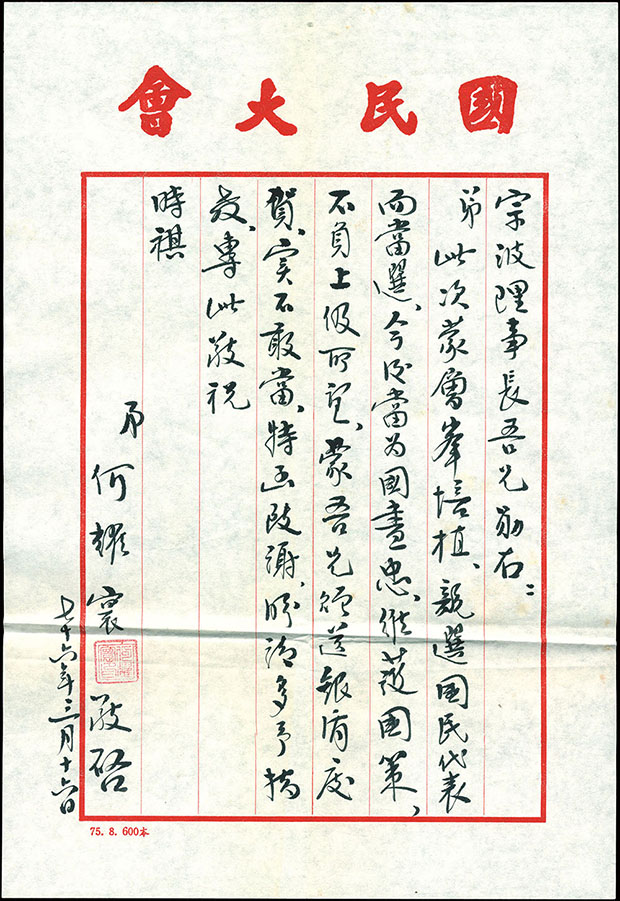 國民大會
宗波理事長吾兄勛右：
弟此次蒙層峯培植、競選國民代表
而當選、今後當为國盡忠、維護國策、
不負上級所望、蒙吾兄送銀盾慶
賀、實不敢當、特函致謝、盼多予指
教、專此敬祝
時祺
弟何耀寰敬啓
七十六年三月十六日
75. 8. 600本